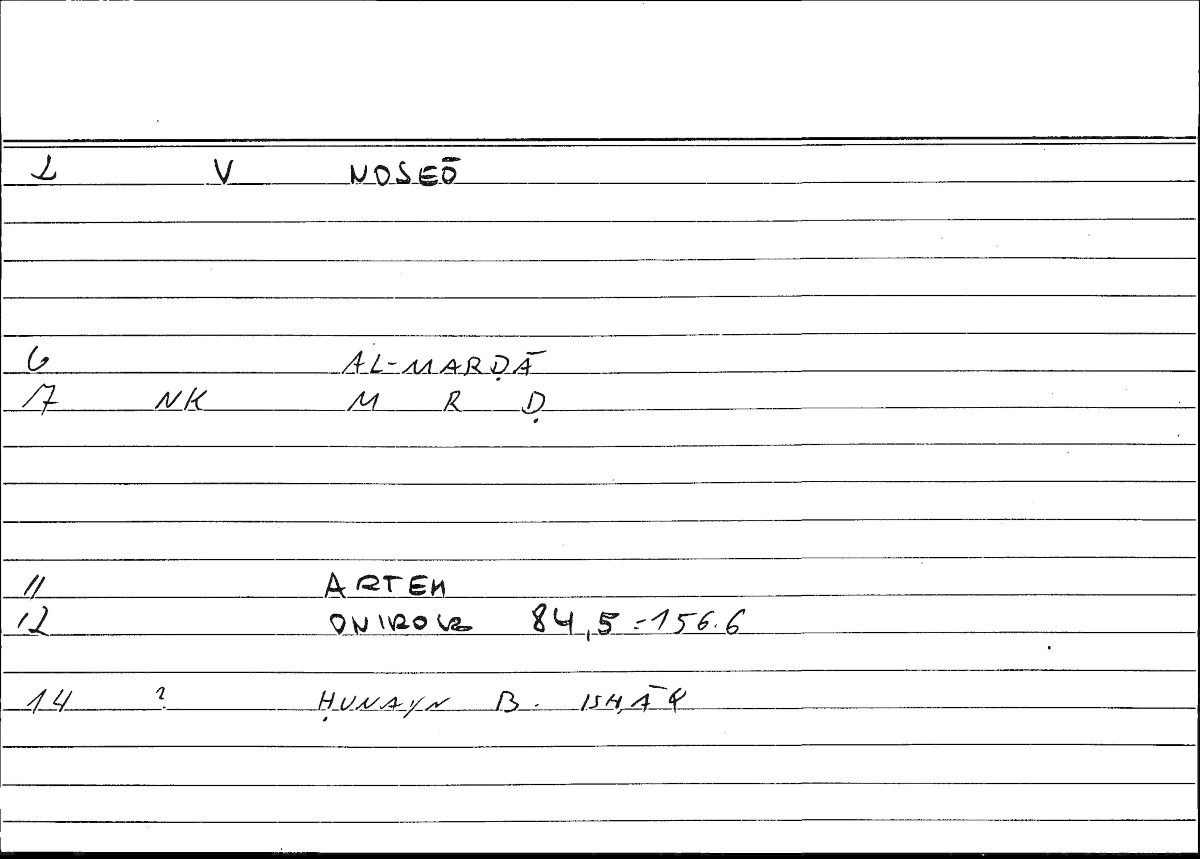 2 V NOSEŌ
6 AL-MARḌĀ
17 NK M R Ḍ
11 ARTEM
12 ONIROCR 84,5=156.6
14 ? ḤUNAYN B. ISḤĀQ